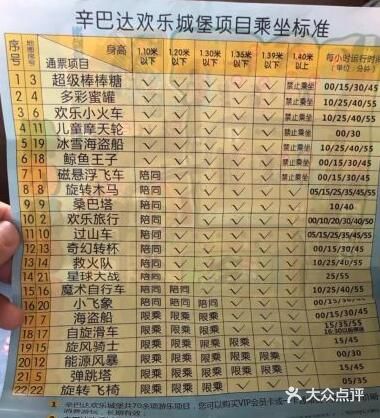 辛巴达欢乐城堡项目乘坐标准
序号 地图序号 身高 通票项目 1.10米以下 1.20米以下 1.30米以下 1.35米以下 1.39米以下 1.40米以上 每小时运行时间(单位:分钟)
1 3 超级棒棒糖 ✓ ✓ ✓ ✓ ✓ 禁止乘坐 00/15/30/45
2 4 多彩蜜罐 ✓ ✓ ✓ ✓ ✓ 禁止乘坐 10/25/40/55
3 6 欢乐小火车 ✓ ✓ ✓ ✓ ✓ 禁止乘坐 10/25/40/55
4 11 儿童摩天轮 ✓ ✓ ✓ ✓ ✓ 禁止乘坐 00/30
5 19 冰雪海盗船 ✓ ✓ ✓ ✓ ✓ 禁止乘坐 00/15/30/45
6 18 鲸鱼王子 ✓ ✓ ✓ ✓ ✓ 禁止乘坐 00/15/30/45
7 1 磁悬浮飞车 陪同 ✓ ✓ ✓ ✓ ✓ 00/15/30/45
8 5 旋转木马 陪同 ✓ ✓ ✓ ✓ ✓ 05/15/25/35/45/55
9 9 桑巴塔 陪同 ✓ ✓ ✓ ✓ ✓ 10/40
10 2 欢乐旅行 陪同 ✓ ✓ ✓ ✓ ✓ 00/10/20/30/40/50
11 10 过山车 陪同 ✓ ✓ ✓ ✓ ✓ 05/15/25/35/45/55
12 13 奇幻转杯 陪同 ✓ ✓ ✓ ✓ ✓ 00/15/30/45
13 14 救火队 陪同 ✓ ✓ ✓ ✓ ✓ 10/25/40/55
14 21 星球大战 陪同 ✓ ✓ ✓ ✓ ✓ 25/55
15 16 魔术自行车 陪同 陪同 ✓ ✓ ✓ ✓ 10/25/40/55
16 20 小飞象 陪同 陪同 陪同 ✓ ✓ ✓
17 7 海盗船 限乘 限乘 限乘 ✓ ✓ ✓ 00/15/30/45
18 17 自旋滑车 限乘 限乘 限乘 ✓ ✓ ✓ 15/35/55
19 15 旋风骑士 限乘 限乘 限乘 限乘 ✓ ✓ 15/45
20 12 能源风暴 限乘 限乘 限乘 限乘 ✓ ✓ 00/30
21 8 弹跳塔 限乘 限乘 限乘 限乘 ✓ ✓ 15/45
22 22 旋转飞椅 限乘 限乘 限乘 限乘 ✓ 05/35
1 辛巴达欢乐城堡共70多项游乐项目,您可以购买VIP会员卡或
大众点评